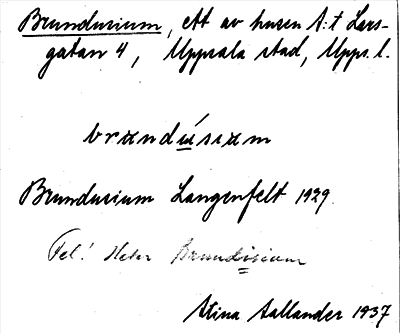 Brundusium, ett av husen S:t Lars-
gatan 4, Uppsala stad, Upps. l.
brɯndúsiɯm
Brundusium Langenfelt 1929.
Fel! Heter Brundisium
Stina Aallander 1937